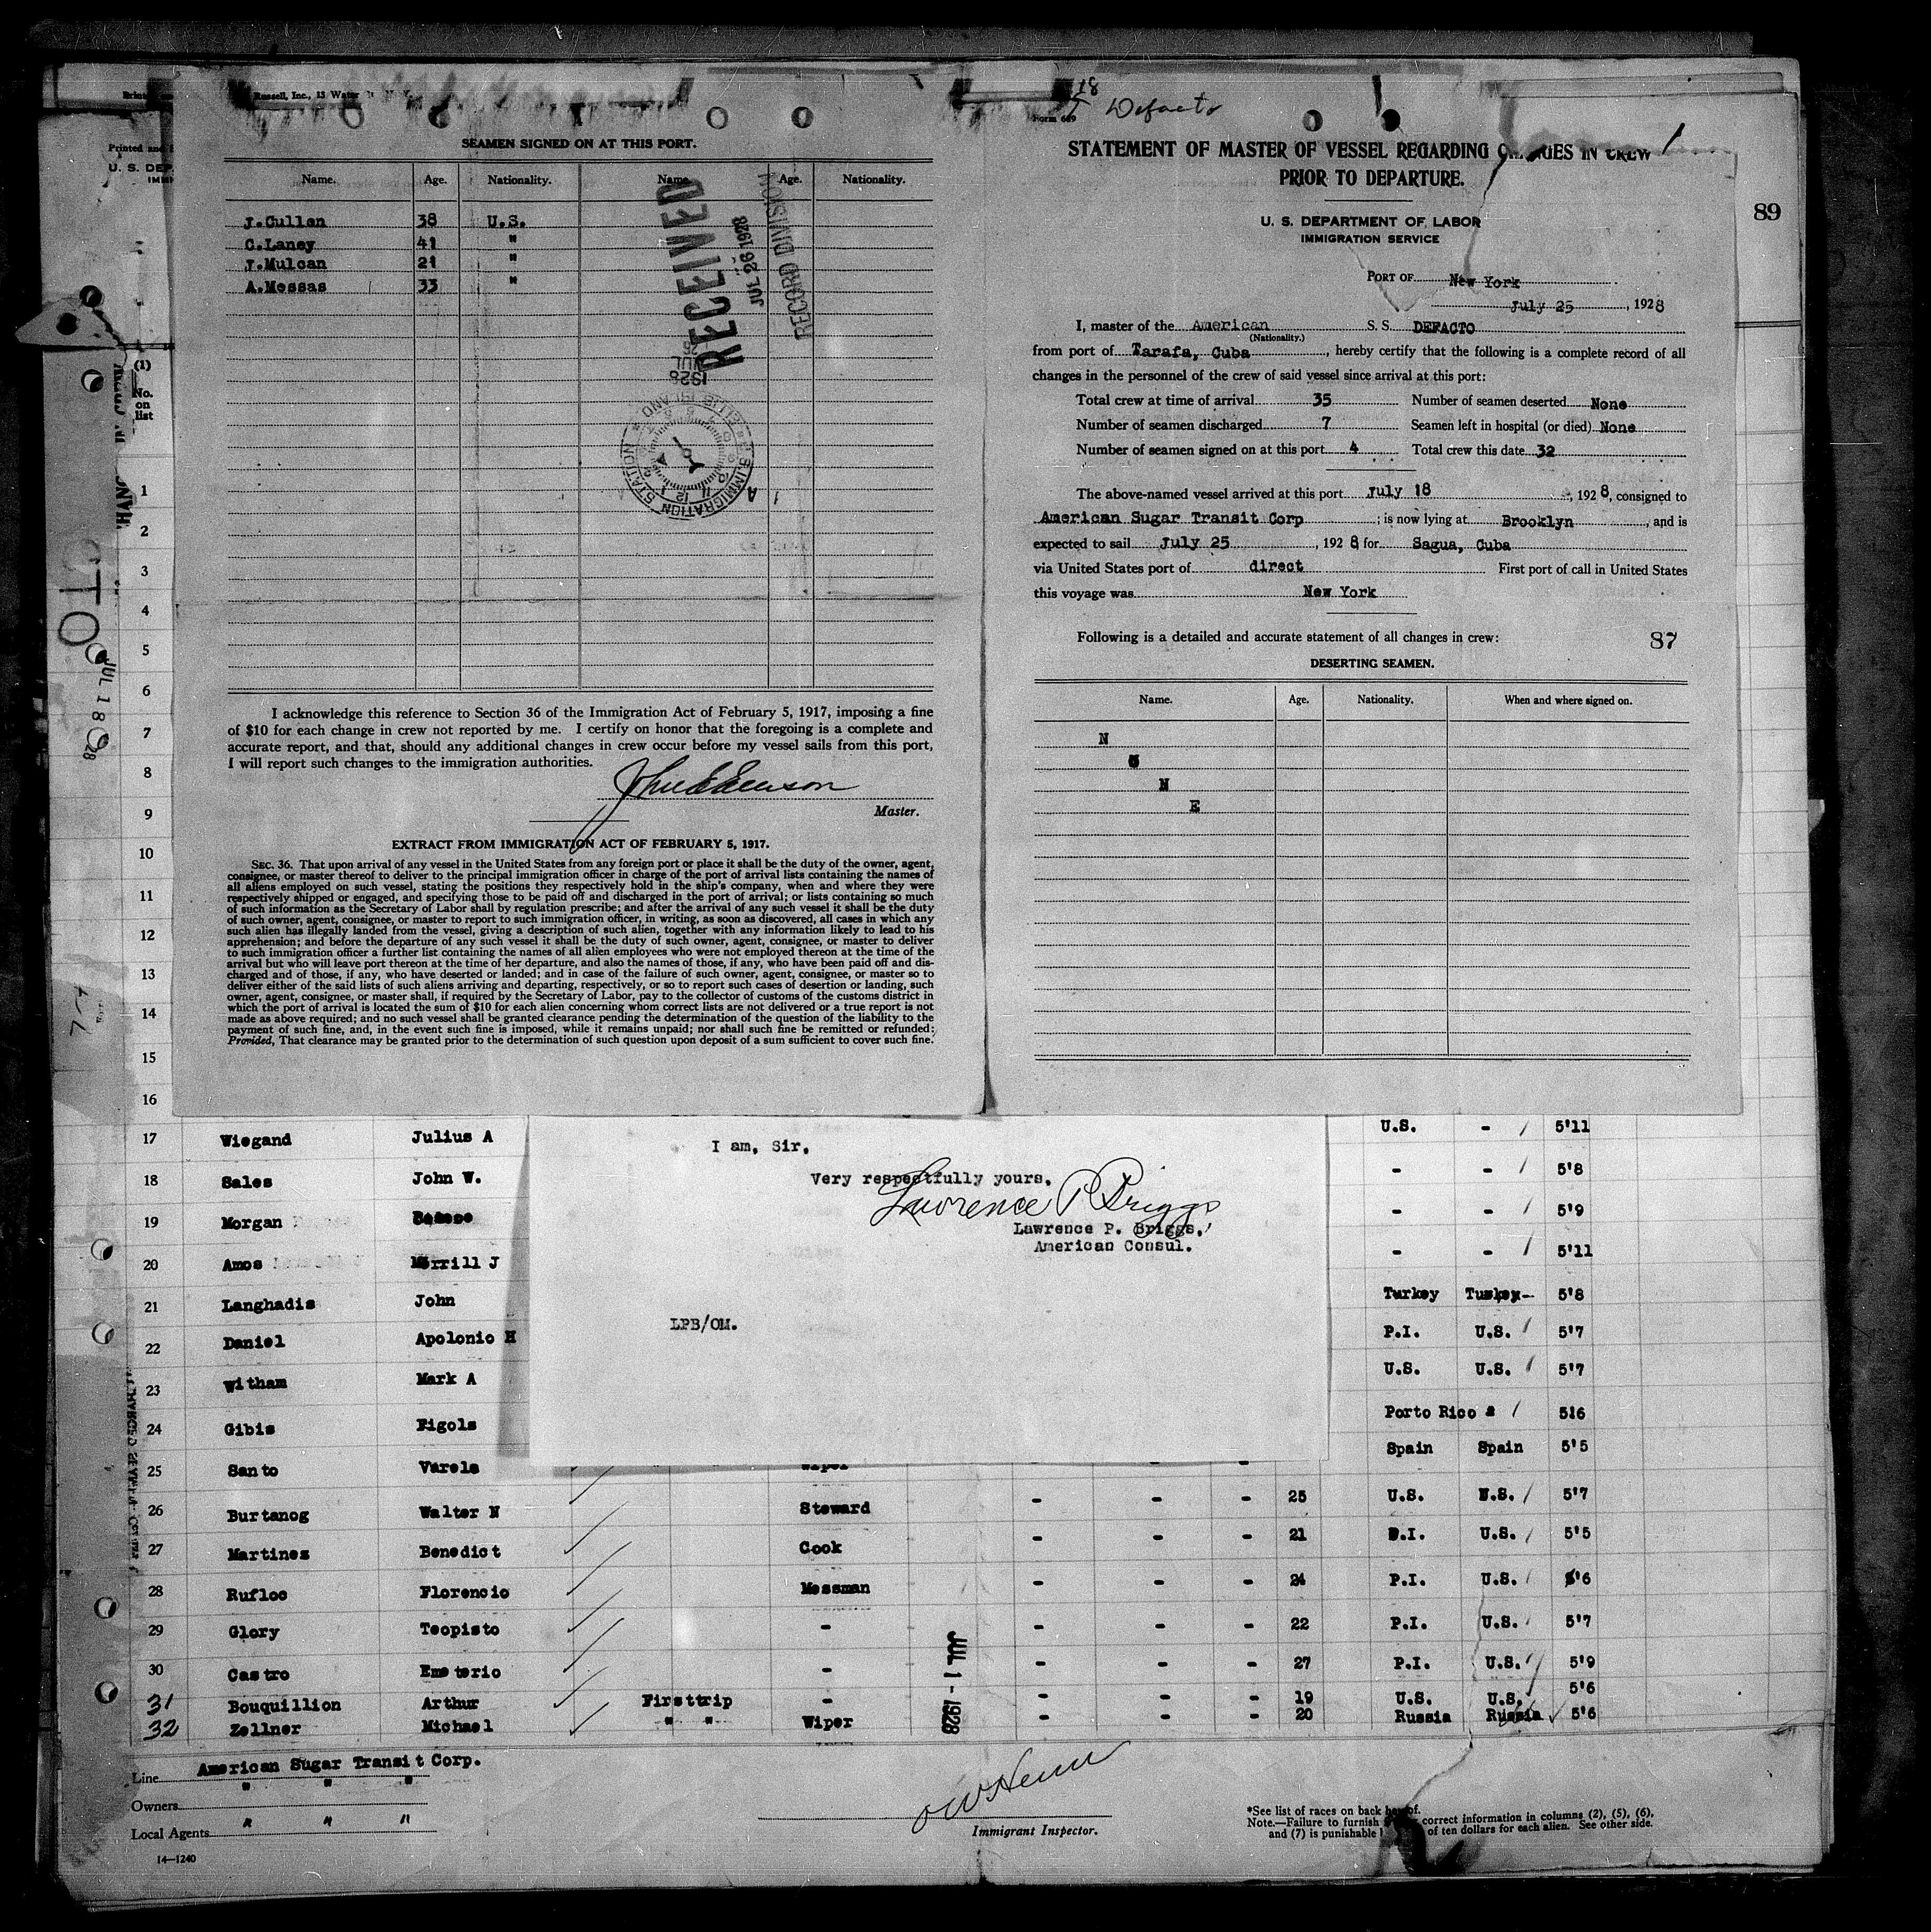 Russell, Inc., 13 Water
SEAMEN SIGNED ON AT THIS PORT.
Name. Age. Nationality. Name. Age. Nationality.
J.Cullen 38 U.S.
C.Laney 41 "
J.Mulcan 21 "
A.Messas 33 "
RECEIVED
JUL 26 1928
RECORD DIVISION
U.S. IMMIGRATION STATION * ELLIS ISLAND *
I acknowledge this reference to Section 36 of the Immigration Act of February 5, 1917, imposing a fine
of $10 for each change in crew not reported by me. I certify on honor that the foregoing is a complete and
accurate report, and that, should any additional changes in crew occur before my vessel sails from this port,
I will report such changes to the immigration authorities.
Master.
EXTRACT FROM IMMIGRATION ACT OF FEBRUARY 5, 1917.
SEC. 36. That upon arrival of any vessel in the United States from any foreign port or place it shall be the duty of the owner, agent,
consignee, or master thereof to deliver to the principal immigration officer in charge of the port of arrival lists containing the names of
all aliens employed on such vessel, stating the positions they respectively hold in the ship's company, when and where they were
respectively shipped or engaged, and specifying those to be paid off and discharged in the port of arrival; or lists containing so much
of such information as the Secretary of Labor shall by regulation prescribe; and after the arrival of any such vessel it shall be the duty
of such owner, agent, consignee, or master to report to such immigration officer, in writing, as soon as discovered, all cases in which any
such alien has illegally landed from the vessel, giving a description of such alien, together with any information likely to lead to his
apprehension; and before the departure of any such vessel it shall be the duty of such owner, agent, consignee, or master to deliver
to such immigration officer a further list containing the names of all alien employees who were not employed thereon at the time of the
arrival but who will leave port thereon at the time of her departure, and also the names of those, if any, who have been paid off and dis-
charged and of those, if any, who have deserted or landed; and in case of the failure of such owner, agent, consignee, or master so to
deliver either of the said lists of such aliens arriving and departing, respectively, or so to report such cases of desertion or landing, such
owner, agent, consignee, or master shall, if required by the Secretary of Labor, pay to the collector of customs of the customs district in
which the port of arrival is located the sum of $10 for each alien concerning whom correct lists are not delivered or a true report is not
made as above required; and no such vessel shall be granted clearance pending the determination of the question of the liability to the
payment of such fine, and, in the event such fine is imposed, while it remains unpaid; nor shall such fine be remitted or refunded:
Provided, That clearance may be granted prior to the determination of such question upon deposit of a sum sufficient to cover such fine.
Defacto
Form 689
STATEMENT OF MASTER OF VESSEL REGARDING CHANGES IN CREW
PRIOR TO DEPARTURE.
U. S. DEPARTMENT OF LABOR
IMMIGRATION SERVICE
89
PORT OF New York
July 25, 1928
I, master of the American S. S. DEFACTO
(Nationality.)
from port of Tarafa, Cuba, hereby certify that the following is a complete record of all
changes in the personnel of the crew of said vessel since arrival at this port:
Total crew at time of arrival 35 Number of seamen deserted None
Number of seamen discharged 7 Seamen left in hospital (or died) None
Number of seamen signed on at this port 4 Total crew this date 32
The above-named vessel arrived at this port July 18, 1928, consigned to
American Sugar Transit Corp; is now lying at Brooklyn, and is
expected to sail July 25, 1928, for Sagua, Cuba
via United States port of direct First port of call in United States
this voyage was New York
Following is a detailed and accurate statement of all changes in crew: 87
DESERTING SEAMEN.
Name. Age. Nationality. When and where signed on.
N
O
N
E
(1)
No.
on
list
JUL 18 1928
1
2
3
4
5
6
7
8
9
10
11
12
13
14
15
16
17 Wiegand Julius A U.S. - 5'11
18 Sales John W. - - 5'8
19 Morgan - - 5'9
20 Amos Merrill J - - 5'11
21 Langhadis John Turkey Turkey- 5'8
22 Daniel Apolonio H P.I. U.S. 5'7
23 Witham Mark A U.S. U.S. 5'7
24 Gibis Figols Porto Rico 516
25 Santo Varela Wiper - - - Spain Spain 5'5
26 Burtanog Walter N Steward - - - 25 U.S. U.S. 5'7
27 Martines Benedict Cook - - - 21 P.I. U.S. 5'5
28 Rufloc Florencio Messman - - - 24 P.I. U.S. 5'6
29 Glory Teopisto - - - - 22 P.I. U.S. 5'7
30 Castro Emeterio - - - - 27 P.I. U.S. 5'9
31 Bouquillion Arthur First trip - - - - 19 U.S. U.S. 5'6
32 Zellner Michael " " Wiper - - - 20 Russia Russia 5'6
JUL 1 - 1928
I am, Sir,
Very respectfully yours,
Lawrence P Briggs
Lawrence P. Briggs,
American Consul.
LPB/OM.
Line American Sugar Transit Corp.
Owners " " "
Local Agents " " "
14—1240
Immigrant Inspector.
*See list of races on back hereof.
Note.—Failure to furnish correct information in columns (2), (5), (6),
and (7) is punishable of ten dollars for each alien. See other side.